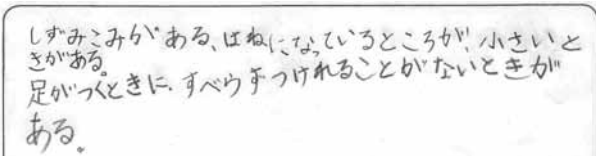 しずみこみがある、はねになっているところが、小さいと
きがある。
足がつくときに、すべらずつけれることがないときが
ある。